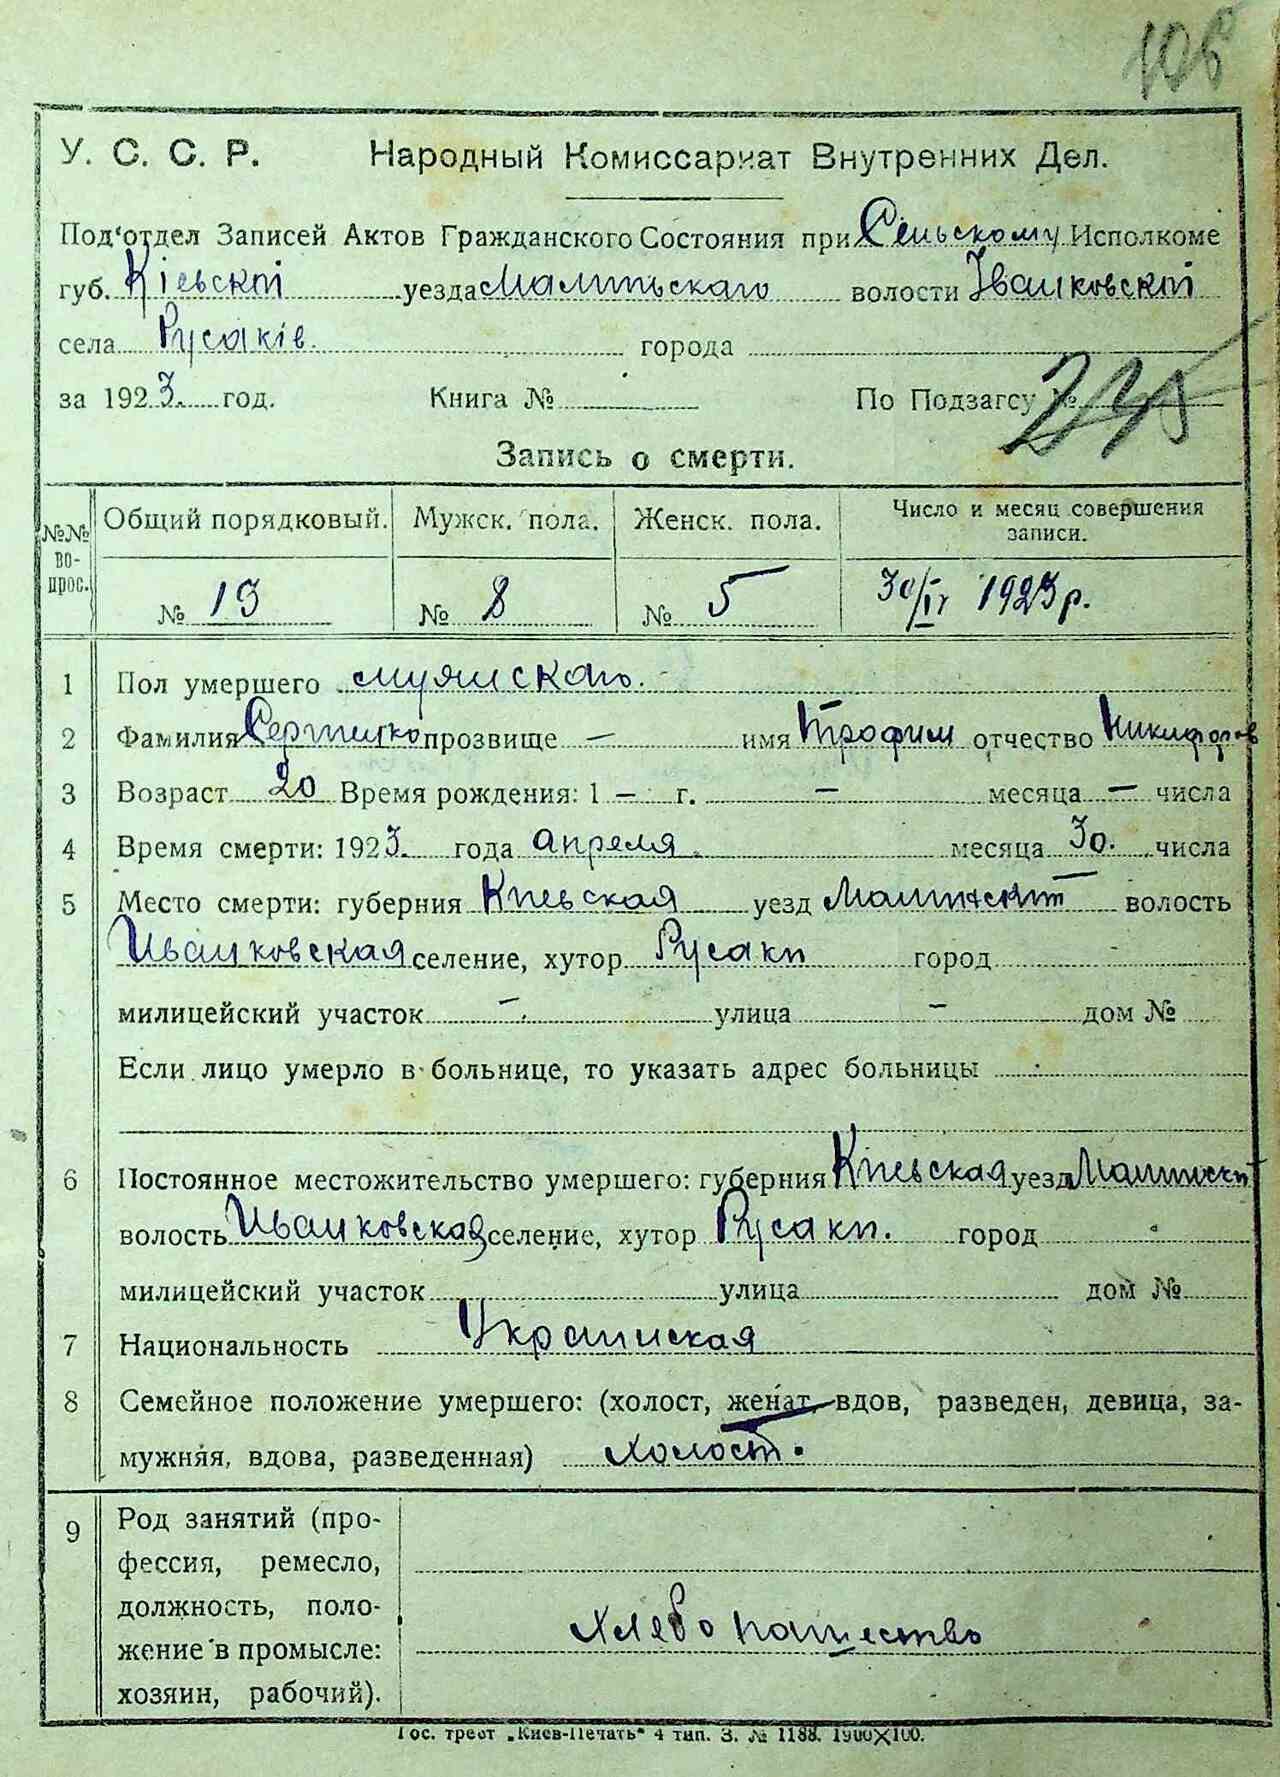 106
У. С. С. Р. Народный Комиссариат Внутренних Дел.
Под‘отдел Записей Актов Гражданского Состояния при Сельскому Исполкоме
губ. Кіевскій уезда Малинскаго волости Іванковскій
села Русаків. города
за 1923. год. Книга № По Подзагсу №
Запись о смерти.
№№ во-прос. Общий порядковый. Мужск. пола. Женск. пола. Число и месяц совершения записи.
№ 13 № 8 № 5 30/IV 1923 р.
1 Пол умершего мужскаго.
2 Фамилия прозвище — имя Трофим отчество Никифоров
3 Возраст 20 Время рождения: 1 — г. — месяца — числа
4 Время смерти: 1923. года апреля месяца 30. числа
5 Место смерти: губерния Киевская уезд Малинский волость
Иванковская селение, хутор Русаки город
милицейский участок — улица — дом №
Если лицо умерло в больнице, то указать адрес больницы
6 Постоянное местожительство умершего: губерния Киевская уезд Малински
волость Иванковская селение, хутор Русаки. город
милицейский участок улица дом №
7 Национальность Украинская
8 Семейное положение умершего: (холост, женат, вдов, разведен, девица, за-
мужняя, вдова, разведенная) холост.
9 Род занятий (про-
фессия, ремесло,
должность, поло-
жение в промысле:
хозяин, рабочий).
Хлебопашество
Гос. трест „Киев-Печать“ 4 тип. З. № 1188. 1900X100.